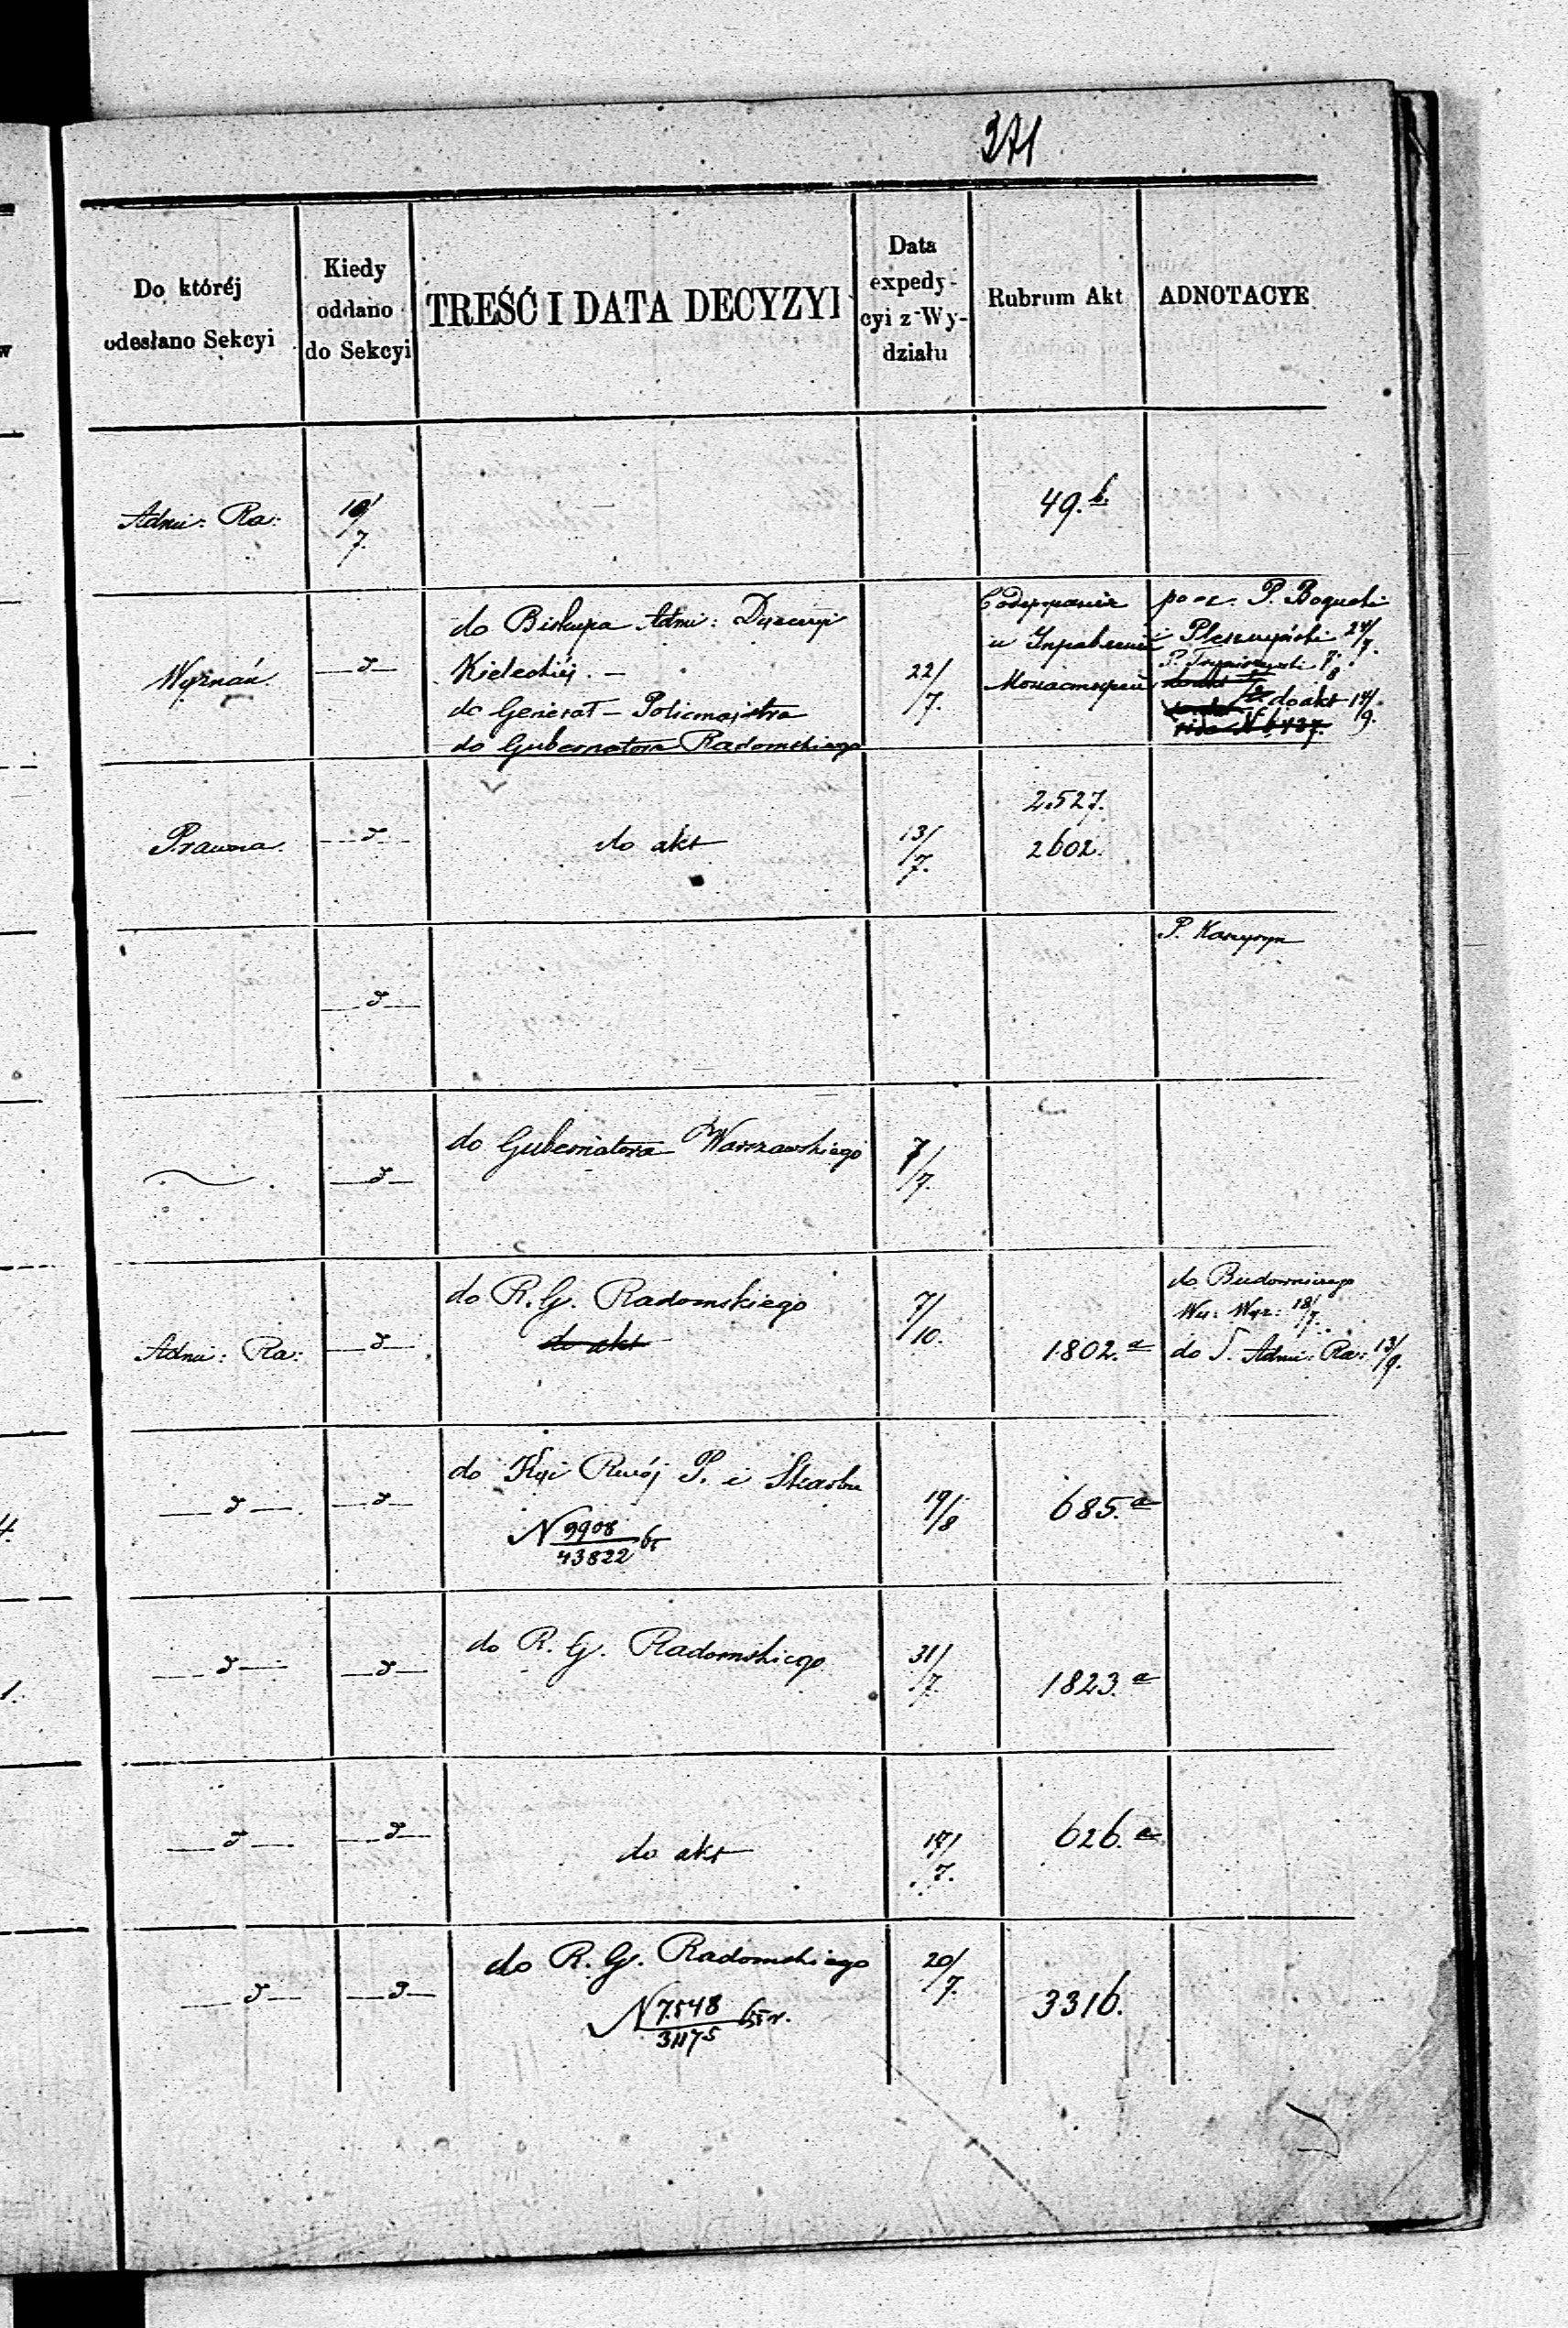 371
Do któréj
odesłano Sekcyi
Kiedy
oddano
do Sekcyi
TREŚĆ I DATA DECYZYI
Data
expedy-
cyi z Wy-
działu
Rubrum Akt
ADNOTACYE
Admi: Ra:
10/7.
49.b.
Wyznań.
—d—
do Biskupa Admi: Dyecezyi
Kieleckiéj. —
do Generał-Policmajstra
do Gubernatora Radomskiego
22/7.
Содержание
и Управление
Монастырей
P. Boguski
Pleszczyński 24/7.
do akt 14/9.
Prawna.
—d—
do akt
13/7.
2527.
2602.
P. Kaszyryn
—d—
—d—
do Gubernatora Warszawskiego
7/7.
Admi: Ra:
—d—
do R. G. Radomskiego
do akt
7/10.
1802.a
do Budowniczego
Wy: Wyz: 18/7.
do S. Admi: Ra: 13/9.
—d—
—d—
do Kyi Rwój P. i Skarbu
N 9908/43822
19/8
685.a
—d—
—d—
do R. G. Radomskiego
31/7.
1823.a
—d—
—d—
do akt
17/7.
626.a
—d—
—d—
do R. G. Radomskiego
N 7548/31175
20/7.
3316.